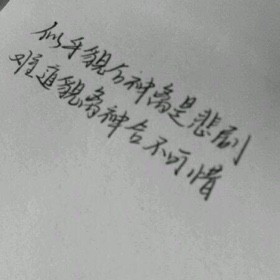 似乎貌合神离是悲剧
难道貌离神合不可惜